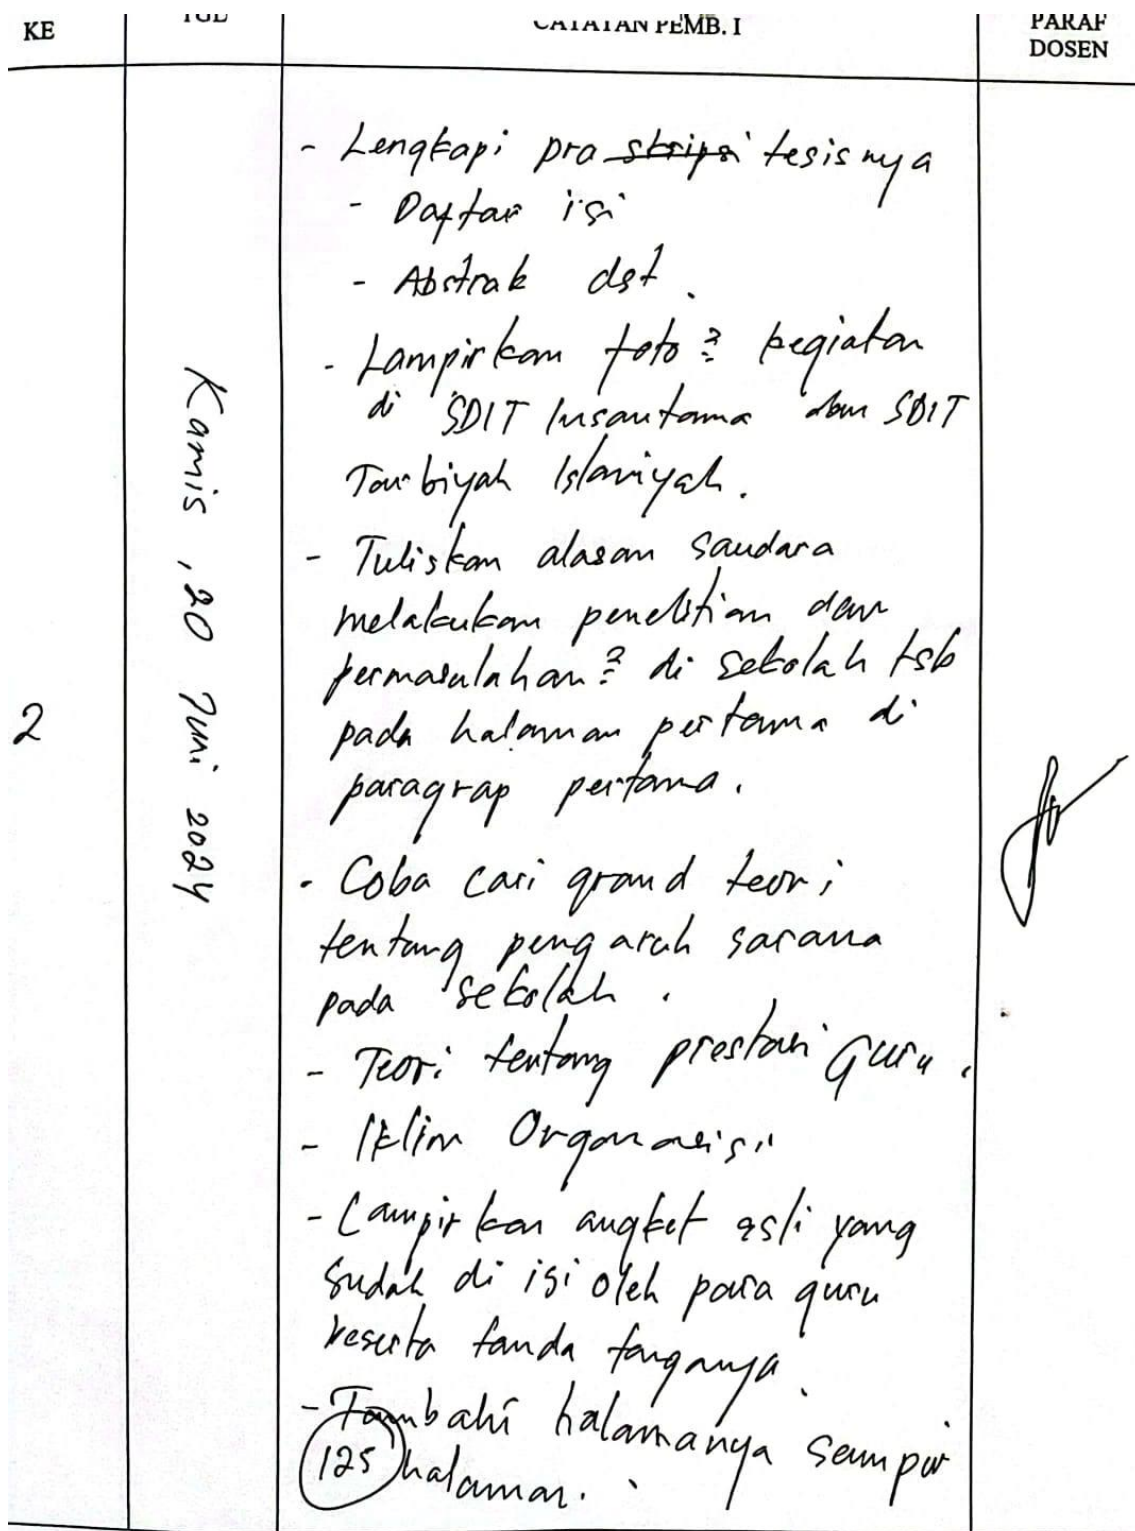 KE
TGL
CATATAN PEMB. I
PARAF
DOSEN
2
Kamis, 20 Juni 2024
- Lengkapi pra skripsi tesisnya
- Daftar isi
- Abstrak dst.
- Lampirkan foto2 kegiatan
di SDIT Insantama dan SDIT
Tarbiyah Islamiyah.
- Tuliskan alasan saudara
melakukan penelitian dan
permasalahan2 di sekolah tsb
pada halaman pertama di
paragrap pertama.
- Coba cari grand teori
tentang pengaruh sarana
pada sekolah.
- Teori tentang prestasi Guru.
- Iklim Organasisi
- Lampirkan angket asli yang
sudah di isi oleh para guru
beserta tanda tanganya.
- Tambahi halamanya sampai
125 halaman.